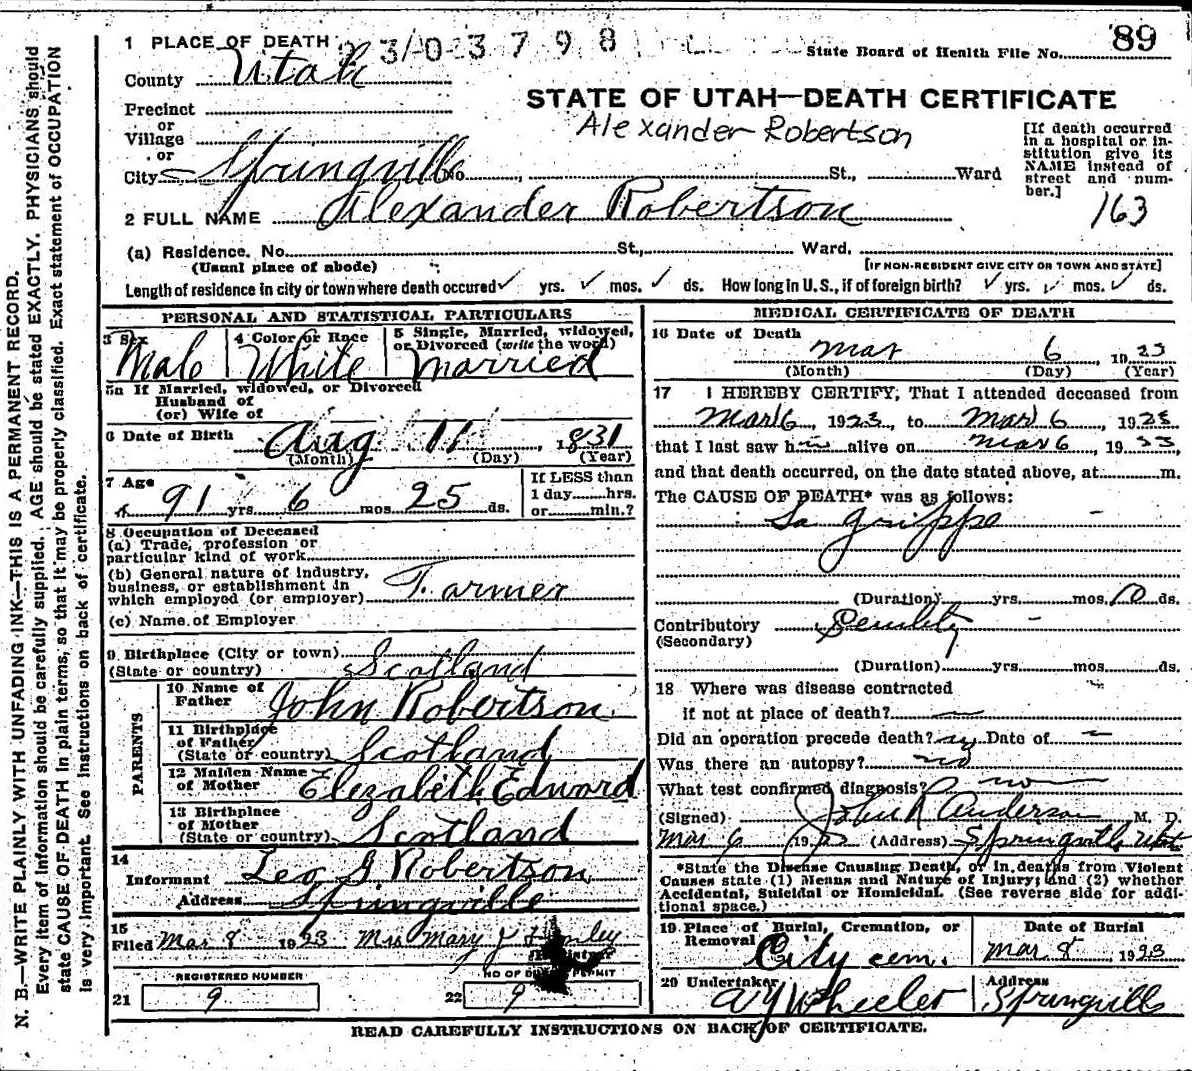 1 PLACE OF DEATH 2 3/0 3 7 9 8
State Board of Health File No. 89
County Utah
STATE OF UTAH—DEATH CERTIFICATE
Precinct
or
Village
or
Alexander Robertson
[If death occurred in a hospital or in-
stitution give its
NAME instead of
street and num-
ber.]
163
City Springville No. , St., Ward
2 FULL NAME Alexander Robertson
(a) Residence. No. St., Ward.
(Usual place of abode) [IF NON-RESIDENT GIVE CITY OR TOWN AND STATE]
Length of residence in city or town where death occured ✓ yrs. ✓ mos. ✓ ds. How long in U. S., if of foreign birth? ✓ yrs. ✓ mos. ✓ ds.
PERSONAL AND STATISTICAL PARTICULARS
3 Sex Male
4 Color or Race White
5 Single, Married, widowed,
or Divorced (write the word)
married
5a If Married, widowed, or Divorced
Husband of
(or) Wife of
6 Date of Birth Aug 11, 1831
(Month) (Day) (Year)
7 Age 91 yrs. 6 mos. 25 ds.
If LESS than
1 day hrs.
or min.?
8 Occupation of Deceased
(a) Trade, profession or
particular kind of work
(b) General nature of industry,
business, or establishment in
which employed (or employer) Farmer
(c) Name of Employer
9 Birthplace (City or town)
(State or country) Scotland
PARENTS
10 Name of
Father John Robertson
11 Birthplace
of Father
(State or country) Scotland
12 Maiden Name
of Mother Elizabeth Edward
13 Birthplace
of Mother
(State or country) Scotland
14
Informant Leo G Robertson
Address Springville
15
Filed Mar 8 1923 Mrs Mary J
REGISTERED NUMBER
21 9
NO OF PERMIT
22 9
MEDICAL CERTIFICATE OF DEATH
16 Date of Death
Mar 6, 1923
(Month) (Day) (Year)
17 I HEREBY CERTIFY, That I attended deceased from
Mar 6, 1923, to Mar 6, 1923.
that I last saw him alive on Mar 6, 1923,
and that death occurred, on the date stated above, at m.
The CAUSE OF DEATH* was as follows:
La grippe
(Duration) yrs. mos. 10 ds.
Contributory Senility
(Secondary)
(Duration) yrs. mos. ds.
18 Where was disease contracted
if not at place of death?
Did an operation precede death? no Date of
Was there an autopsy? no
What test confirmed diagnosis? no
(Signed) John R Anderson M. D.
Mar 6 1923 (Address) Springville Utah
*State the Disease Causing Death, or in deaths from Violent
Causes state (1) Means and Nature of Injury; and (2) whether
Accidental, Suicidal or Homicidal. (See reverse side for addi-
tional space.)
19 Place of Burial, Cremation, or
Removal City cem.
Date of Burial
Mar 8 1923
20 Undertaker A Y Wheeler
Address
Springville
READ CAREFULLY INSTRUCTIONS ON BACK OF CERTIFICATE.
N. B.—WRITE PLAINLY WITH UNFADING INK—THIS IS A PERMANENT RECORD.
Every item of information should be carefully supplied. AGE should be stated EXACTLY. PHYSICIANS should
state CAUSE OF DEATH in plain terms, so that it may be properly classified. Exact statement of OCCUPATION
is very important. See instructions on back of certificate.